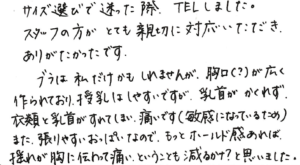 サイズ選びで迷った際、TELしました。
スタッフの方が とても親切に対応いただき、
ありがたかったです。
ブラは私だけかも しれませんが、胸口(?)が広く
作られており、授乳はしやすいですが、乳首が かくれず、
衣類と乳首がすれてしまい、痛いです(敏感になっているため)
また、張りやすいおっぱいなので、もっと ホールド感あれば、
揺れが胸に伝わって痛い、ということも 減るかな?と思いました。